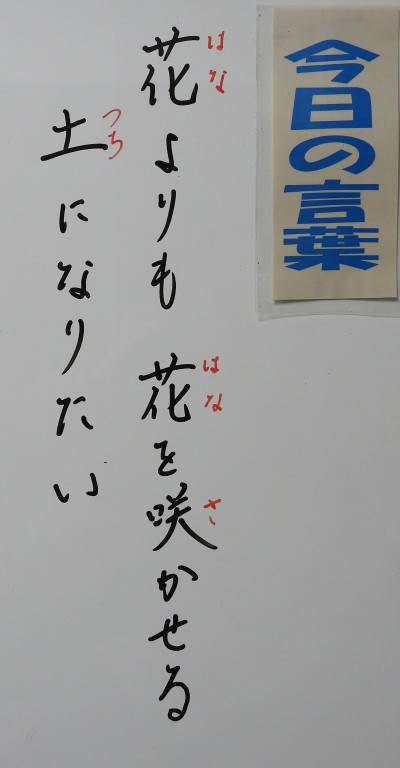 今日の言葉
花よりも 花を咲かせる
はな
はな
さ
土になりたい
つち